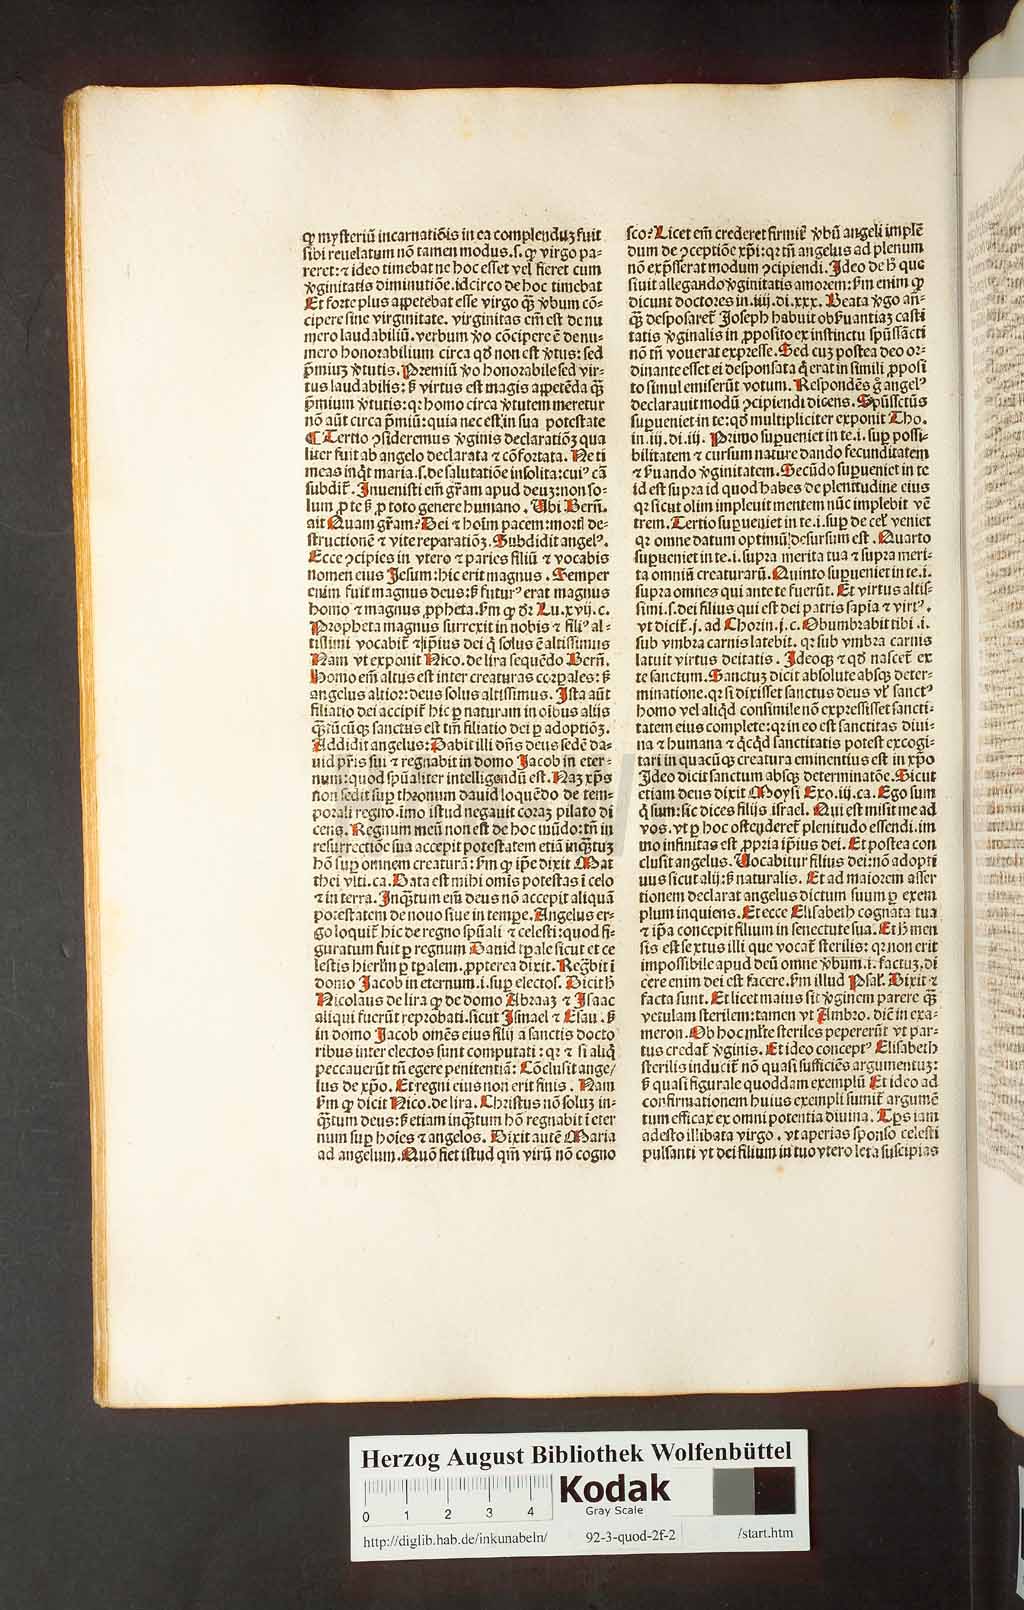 ꝙ mysteriũ incarnatiõis in ea complenduꝫ fuit
sibi reuelatum nõ tamen modus.s. ꝙ virgo pa⸗
reret:⁊ ideo timebat ne hoc esset vel fieret cum
v̾ginitatis diminutiõe.idcirco de hoc timebat
Et forte plus appetebat esse virgo q̃ꝫ v̾bum cõ⸗
cipere sine virginitate. virginitas em̃ est de nu
mero laudabiliũ.verbum v̾o cõcipere ẽ de nu⸗
mero honorabilium circa qd̃ non est v̾tus: sed
p̃miuꝫ v̾tutis. Premiũ v̾o honorabile sed vir⸗
tus laudabilis: ß virtus est magis appetẽda q̃ꝫ
p̃mium v̾tutis: qꝛ homo circa v̾tutem meretur
nõ aũt circa p̃miũ: quia nec est in sua potestate
¶ Tertio ꝯsideremus v̾ginis declaratiõꝫ qua
liter fuit ab angelo declarata ⁊ cõfortata. Ne ti
meas inq̇t maria.s. de salutatiõe insolita: cuiꝰ cã
subdit̃. Inuenisti em̃ gr̃am apud deuꝫ: non so⸗
lum ꝓ te ß ꝓ toto genere humano. Ubi Bern̄.
ait Quam gr̃am? Dei ⁊ hoĩm pacem: mortĩ de⸗
structionẽ ⁊ vite reparatiõꝫ. Subdidit angelꝰ.
Ecce ꝯcipies in vtero ⁊ paries filiũ ⁊ vocabis
nomen eius Jesum: hic erit magnus. Semper
enim fuit magnus deus: ß futurꝰ erat magnus
homo ⁊ magnus ꝓpheta. ßm ꝙ dꝛ̃ Lu.xvij.c.
Propheta magnus surrexit in nobis ⁊ filiꝰ al⸗
tissimi vocabit̃ ⁊ ip̃ius dei q̇ solus ẽ altissimus
Nam vt exponit Nico. de lira sequẽdo Bern̄.
Homo em̃ altus est inter creaturas corꝑales: ß
angelus altior: deus solus altissimus. Ista aũt
filiatio dei accipit̃ hic ꝑ naturam in oĩbus alijs
q̃ꝫtũcũqꝫ sanctus est tm̃ filiatio dei ꝑ adoptiõꝫ.
Addidit angelus: Dabit illi dñs deus sedẽ da⸗
uid pr̃is sui ⁊ regnabit in domo Jacob in eter⸗
num: quod spũaliter intelligendũ est. Naꝫ xp̃s
non sedit suꝑ thronum dauid loquẽdo de tem⸗
porali regno. imo istud negauit coraꝫ pilato di
cens. Regnum meũ non est de hoc mũdo: tñ in
resurrectiõe sua accepit potestatem etiã inq̃ꝫtuꝫ
hõ suꝑ omnem creaturã: ßm ꝙ ip̃e dixit Mat
thei vlti.ca. Data est mihi om̃is potestas ĩ celo
⁊ in terra. Inq̃ꝫtum em̃ deus nõ accepit aliquã
potestatem de nouo siue in tempe. Angelus er⸗
go loquit̃ hic de regno spũali ⁊ celesti: quod fi⸗
guratum fuit ꝑ regnum Dauid tꝑale sicut et ce
lestis hierlm̃ ꝑ tꝑalem. ꝓpterea dixit. Regb̃it ĩ
domo Jacob in eternum.i. suꝑ electos. Dicit h̃
Nicolaus de lira ꝙ de domo Abraaꝫ ⁊ Isaac
aliqui fuerũt reprobati. sicut Ismael ⁊ Esau. ß
in domo Jacob omẽs eius filij a sanctis docto
ribus inter electos sunt computati: qꝛ ⁊ si aliq̇
peccauerũt tñ egere penitentiã: Cõclusit ange/
lus de xp̃o. Et regni eius non erit finis. Nam
ßm ꝙ dicit Nico. de lira. Christus nõ soluꝫ in⸗
q̃ꝫtum deus: ß etiam inq̃ꝫtum hõ regnabit ĩ eter
num suꝑ hoĩes ⁊ angelos. Dixit autẽ Maria
ad angelum. Quõ fiet istud qm̃ virũ nõ cogno
sco? Licet em̃ crederet firmit̃ v̾bũ angeli implẽ
dum de ꝯceptiõe xp̃i: qꝛ tñ angelus ad plenum
nõ exp̃sserat modum ꝯcipiendi. Ideo de h̃ que
siuit allegando v̾ginitatis amorem: ßm enim ꝙ
dicunt doctores in.iiij.di.xxx. Beata v̾go añ⸗
q̃ꝫ desposaret̃ Joseph habuit obß̃uantiaꝫ casti
tatis v̾ginalis in ꝓposito ex instinctu spũssãcti
nõ tñ vouerat expresse. Sed cuꝫ postea deo or⸗
dinante esset ei desponsata q̇ erat in simili ꝓposi
to simul emiserũt votum. Respondẽs g̊ angelꝰ
declarauit modũ ꝯcipiendi dicens. Spũssctũs
suꝑueniet in te: qd̃ multipliciter exponit Tho.
in.iij.di.iij. Primo suꝑueniet in te.i. suꝑ possi⸗
bilitatem ⁊ cursum nature dando fecunditatem
⁊ ß̃uando v̾ginitatem. Secũdo suꝑueniet in te
id est supra id quod habes de plenitudine eius
qꝛ sicut olim impleuit mentem nũc implebit vẽ
trem. Tertio suꝑueniet in te.i. suꝑ de cel̃ veniet
qꝛ omne datum optimũ desursum est. Quarto
suꝑueniet in te.i. supra merita tua ⁊ supra meri⸗
ta omniũ creaturarũ. Quinto suꝑueniet in te.i.
supra omnes qui ante te fuerũt. Et virtus altis⸗
simi.s. dei filius qui est dei patris sapĩa ⁊ virtꝰ.
vt dicit̃.j. ad Chorin.j.c. Obumbrabit tibi.i.
sub vmbra carnis latebit. qꝛ sub vmbra carnis
latuit virtus deitatis. Ideoqꝫ ⁊ qd̃ nascet̃ ex
te sanctum. Sanctuꝫ dicit absolute absqꝫ deter⸗
minatione. qꝛ si dixisset sanctus deus vl̃ sanctꝰ
homo vel aliq̇d consimile nõ expressisset sancti⸗
tatem eius complete: qꝛ in eo est sanctitas diui⸗
na ⁊ humana ⁊ q̇cq̇d sanctitatis potest excogi⸗
tari in quacũqꝫ creatura eminentius est in xp̃o
Ideo dicit sanctum absqꝫ determinatõe. Sicut
etiam deus dixit Moysi Exo.iij.ca. Ego sum
q̇ sum: sic dices filijs israel. Qui est misit me ad
vos. vt ꝑ hoc ostenderet̃ plenitudo essendi. im
mo infinitas est ꝓpria ip̃ius dei. Et postea con
clusit angelus. Vocabitur filius dei: nõ adopti
uus sicut alij: ß naturalis. Et ad maiorem asser
tionem declarat angelus dictum suum ꝑ exem
plum inquiens. Et ecce Elisabeth cognata tua
⁊ ip̃a concepit filium in senectute sua. Et h̃ men
sis est sextus illi que vocat̃ sterilis: qꝛ non erit
impossibile apud deũ omne v̾bum.i. factuꝫ. di
cere enim dei est facere. ßm illud Psal̃. Dixit ⁊
facta sunt. Et licet maius sit v̾ginem parere q̃ꝫ
vetulam sterilem: tamen vt Ambro. dic̃ in exa⸗
meron. Ob hoc ml̃te steriles pepererũt vt par⸗
tus credat̃ v̾ginis. Et ideo conceptꝰ Elisabeth
sterilis inducit̃ nõ quasi sufficiẽs argumentuꝫ:
ß quasi figurale quoddam exemplũ Et ideo ad
confirmationem huius exempli sumit̃ argumẽ
tum efficax ex omni potentia diuina. Tp̃s iam
adesto illibata virgo. vt aperias sponso celesti
pulsanti vt dei filium in tuo vtero leta suscipias
Herzog August Bibliothek Wolfenbüttel
0 1 2 3 4
Kodak
Gray Scale
http://diglib.hab.de/inkunabeln/ 92-3-quod-2f-2 /start.htm